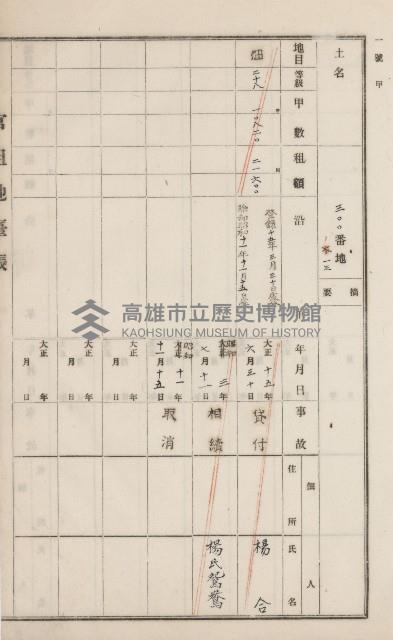 一號甲
土名
三〇〇番地
一三
摘要
地目
等級
甲數
租額
沿革
年月日
事故
佃人
住所
氏名
畑
二十八
一〇八二〇
二一六〇〇
大正十五年
六月三十日
貸付
楊合
昭和三年
七月十一日
相續
楊氏鴛鴦
昭和十一年
十一月十五日
取消
大正 年
月 日
大正 年
月 日
大正 年
月 日
官租地臺帳
高雄市立歷史博物館
KAOHSIUNG MUSEUM OF HISTORY